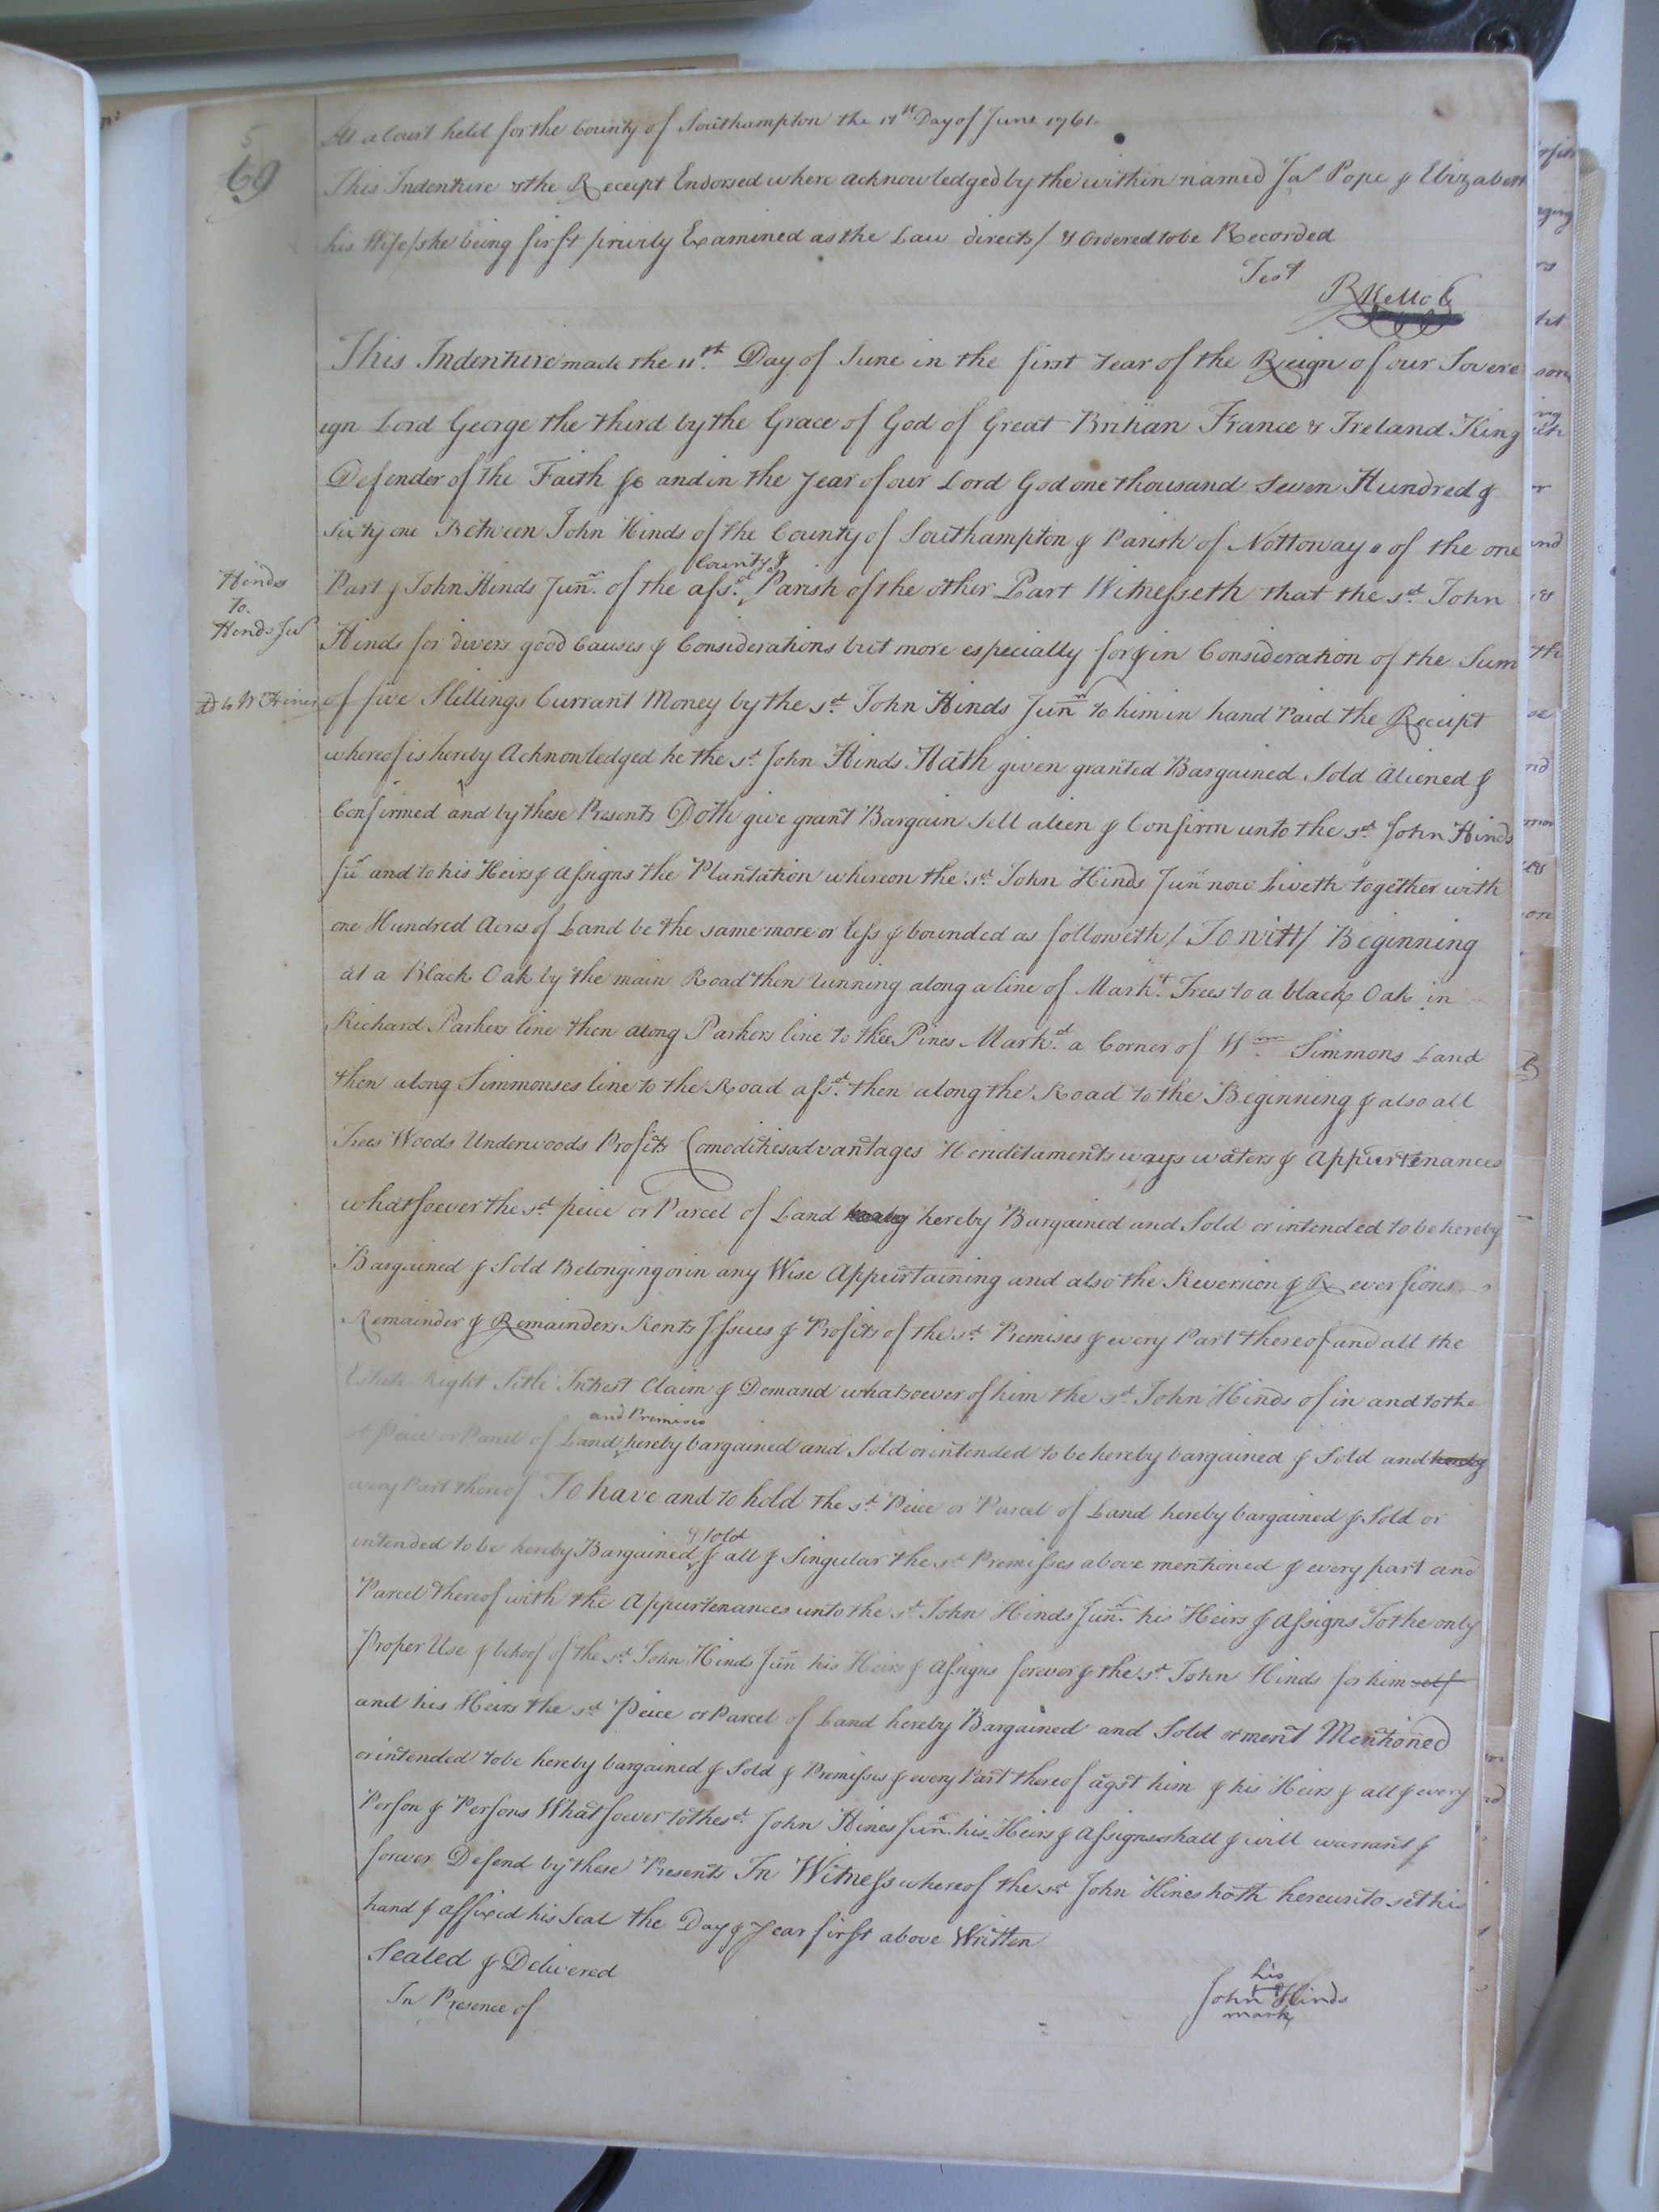 5
69
At a Court held for the County of Southampton the 11th Day of June 1761.
This Indenture & the Receipt Endorsed where acknowledged by the within named Jas Pope & Elizabeth
his Wife /she being first privily Examined as the Law directs/ & Ordered to be Recorded
Test
R Kello C
This Indenture made the 11th. Day of June in the first Year of the Reign of our Sovere
ign Lord George the third by the Grace of God of Great Britian France & Ireland King
Defender of the Faith &c and in the Year of our Lord God one thousand Seven Hundred &
Sixty one Between John Hinds of the County of Southampton & Parish of Nottoway of the one
County &
Part & John Hinds Junr. of the afsd. Parish of the other Part Witnesseth that the sd. John
Hinds
to.
Hinds Jur
Hinds for divers good Causes & Considerations but more especially for & in Consideration of the Sum
of five Shillings Currant Money by the sd. John Hinds Junr to him in hand Paid the Receipt
whereof is hereby Acknowledged he the sd. John Hinds Hath given granted Bargained Sold aliened &
Confirmed and by these Presents Doth give grant Bargain Sell alien & Confirm unto the sd. John Hinds
Jur and to his Heirs & Assigns the Plantation whereon the sd. John Hinds Junr now Liveth together with
one Hundred Acres of Land be the same more or less & bounded as followeth / To witt / Beginning
at a Black Oak by the main Road then running along a line of Markt. Trees to a black Oak in
Richard Parkers line then along Parkers line to thee Pines Markd. a Corner of Wm. Simmons Land
then along Simmonses line to the Road afsd. then along the Road to the Beginning & also all
Trees Woods Underwoods Profits Comodities advantages Heriditaments ways waters & Appurtenances
whatsoever the sd. peice or Parcel of Land hereby Bargained and Sold or intended to be hereby
Bargained & Sold Belonging or in any Wise Appurtaining and also the Reversion & Reversions
Remainder & Remainders Rents Issues & Profits of the sd. Premises & every Part thereof and all the
Estate Right Title Intrest Claim & Demand whatsoever of him the sd. John Hinds of in and to the
and Premises
sd. Peice or Parcel of Land hereby bargained and Sold or intended to be hereby bargained & Sold and hereby
every Part thereof To have and to hold the sd. Peice or Parcel of Land hereby bargained & Sold or
& sold
intended to be hereby Bargained & all & Singular the sd. Premisses above mentioned & every part and
Parcel thereof with the Appurtenances unto the sd. John Hinds Junr. his Heirs & Assigns To the only
Proper Use & behoof of the sd. John Hinds Junr his Heirs & Assigns forever & the sd. John Hinds for him self
and his Heirs the sd. Peice or Parcel of Land hereby Bargained and Sold or ment Mentioned
or intended to be hereby bargained & Sold & Premisses & every Part thereof agst him & his Heirs & all & every
Person & Persons Whatsoever to the sd. John Hines Junr. his Heirs & Assigns shall & will warrant &
forever Defend by these Presents In Witness whereof the sd. John Hines hath hereunto set his
hand & affixed his Seal the Day & Year first above Written
Sealed & Delivered
In Presence of
his
John Hinds
mark